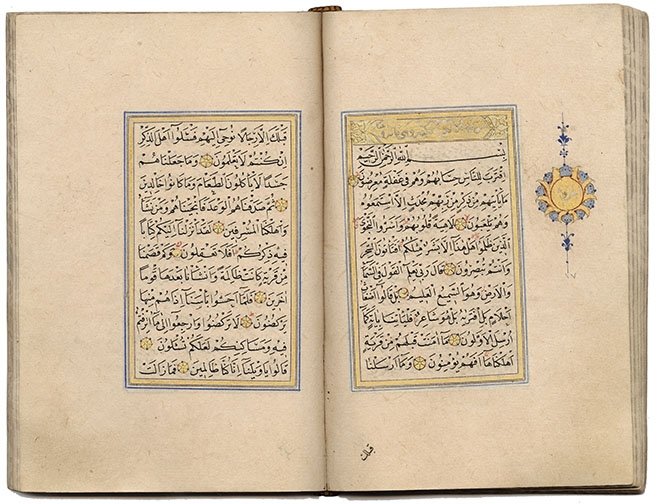 بِسْمِ اللهِ الرَّحْمٰنِ الرَّحِيمِ
اِقْتَرَبَ لِلنَّاسِ حِسَابُهُمْ وَهُمْ فِي غَفْلَةٍ مُعْرِضُونَ
مَا يَأْتِيهِمْ مِنْ ذِكْرٍ مِنْ رَبِّهِمْ مُحْدَثٍ اِلَّا اسْتَمَعُوهُ
وَهُمْ يَلْعَبُونَ لَاهِيَةً قُلُوبُهُمْ وَاَسَرُّوا النَّجْوَى
الَّذِينَ ظَلَمُوا هَلْ هٰذَا اِلَّا بَشَرٌ مِثْلُكُمْ اَفَتَأْتُونَ السِّحْرَ
وَاَنْتُمْ تُبْصِرُونَ قَالَ رَبِّي يَعْلَمُ الْقَوْلَ فِي السَّمَاءِ
وَالْاَرْضِ وَهُوَ السَّمِيعُ الْعَلِيمُ بَلْ قَالُوا اَضْغَاثُ
اَحْلَامٍ بَلِ افْتَرٰيهُ بَلْ هُوَ شَاعِرٌ فَلْيَأْتِنَا بِاٰيَةٍ كَمَا
اُرْسِلَ الْاَوَّلُونَ مَا اٰمَنَتْ قَبْلَهُمْ مِنْ قَرْيَةٍ
اَهْلَكْنَاهَا اَفَهُمْ يُؤْمِنُونَ وَمَا اَرْسَلْنَا
قبلك
قَبْلَكَ اِلَّا رِجَالًا نُوحِي اِلَيْهِمْ فَسْئَلُوا اَهْلَ الذِّكْرِ
اِنْ كُنْتُمْ لَا تَعْلَمُونَ وَمَا جَعَلْنَاهُمْ
جَسَدًا لَا يَأْكُلُونَ الطَّعَامَ وَمَا كَانُوا خَالِدِينَ
ثُمَّ صَدَقْنَاهُمُ الْوَعْدَ فَاَنْجَيْنَاهُمْ وَمَنْ نَشَاءُ
وَاَهْلَكْنَا الْمُسْرِفِينَ لَقَدْ اَنْزَلْنَا اِلَيْكُمْ كِتَابًا
فِيهِ ذِكْرُكُمْ اَفَلَا تَعْقِلُونَ وَكَمْ قَصَمْنَا
مِنْ قَرْيَةٍ كَانَتْ ظَالِمَةً وَاَنْشَأْنَا بَعْدَهَا قَوْمًا
اٰخَرِينَ فَلَمَّا اَحَسُّوا بَأْسَنَا اِذَا هُمْ مِنْهَا
يَرْكُضُونَ لَا تَرْكُضُوا وَارْجِعُوا اِلَى مَا اُتْرِفْتُمْ
فِيهِ وَمَسَاكِنِكُمْ لَعَلَّكُمْ تُسْئَلُونَ
قَالُوا يَا وَيْلَنَا اِنَّا كُنَّا ظَالِمِينَ فَمَا زَالَتْ